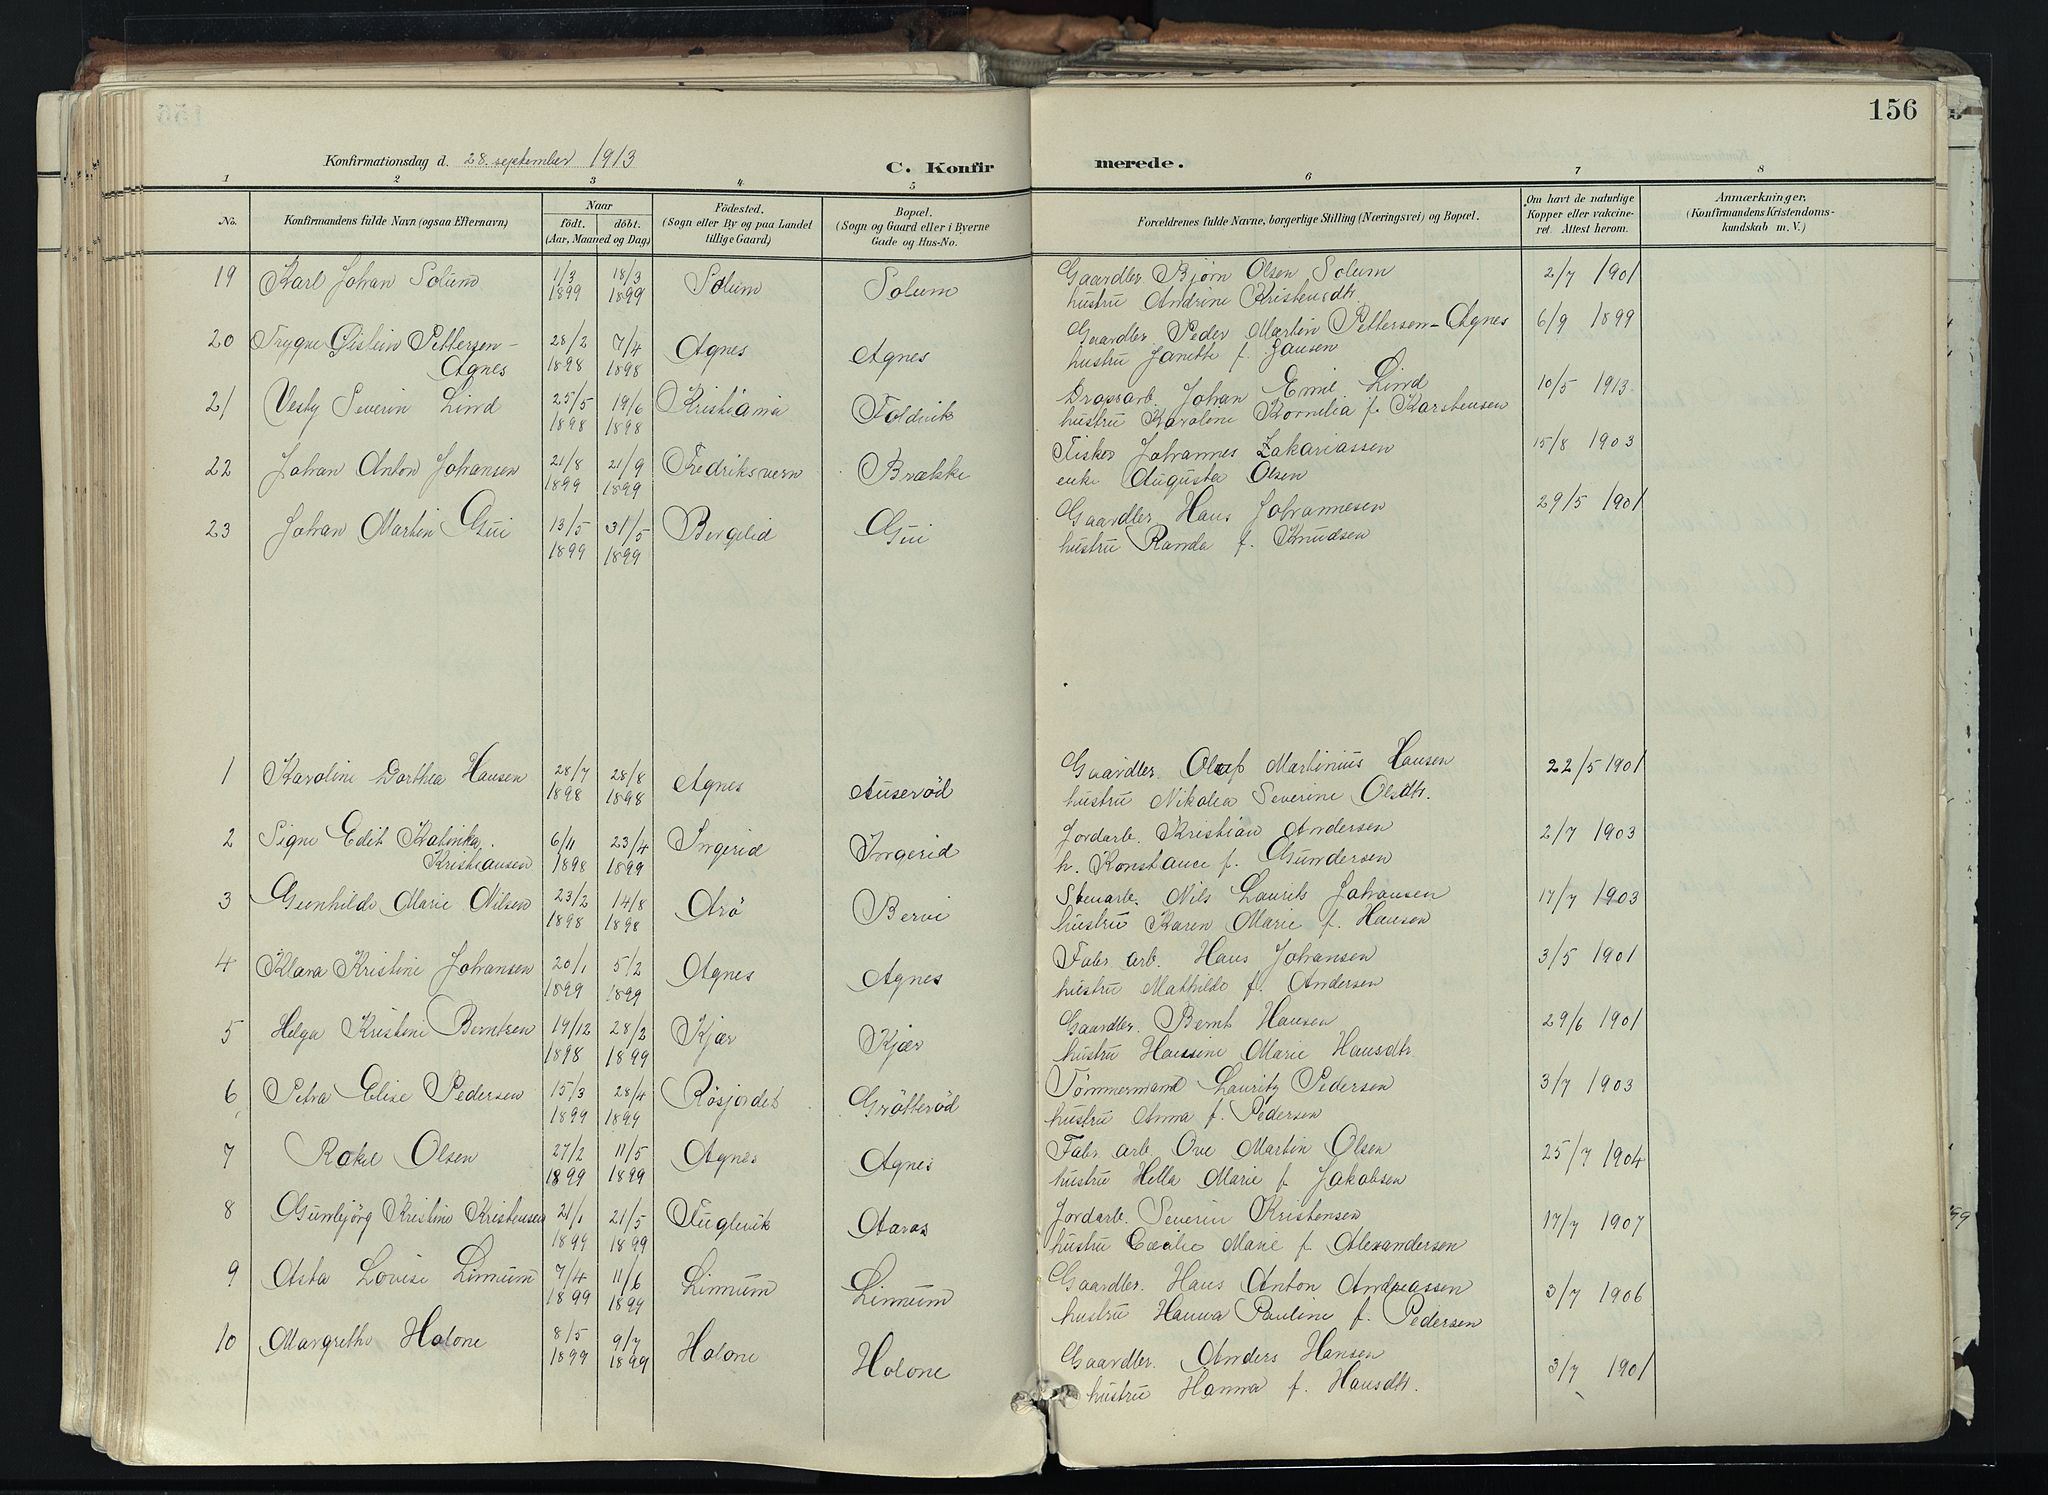 156
Konfirmationsdag d. 28. september 1913
C. Konfir merede.
1 2 3 4 5 6 7 8
No.
Konfirmandens fulde Navn (ogsaa Efternavn)
Naar
födt. döbt.
(Aar, Maaned og Dag)
Födested.
(Sogn eller By og paa Landet
tillige Gaard)
Bopæl.
(Sogn og Gaard eller i Byerne
Gade og Hus-No.
Forældrenes fulde Navne, borgerlige Stilling (Næringsvei) og Bopæl.
Om havt de naturlige
Kopper eller vakcine-
ret. Attest herom.
Anmærkninger.
(Konfirmandens Kristendoms-
kundskab m. V.)
19 Karl Johan Solum 1/3 1899 18/3 1899 Solum Solum Gaardbr. Bjørn Olsen Solum 2/7 1901
hustru Andrine Kristensdtr.
20 Trygve Øistein Pettersen- 28/2 1898 7/4 1898 Agnes Agnes Gaardbr. Peder Martin Pettersen-Agnes 6/9 1899
Agnes hustru Janette f. Jansen
21 Vesty Severin Lind 25/5 1898 19/6 1898 Kristiania Foldvik Johan Emil Lind 10/5 1913
hustru Karoline Kornelia f. Karstensen
22 Johan Anton Johansen 21/8 1899 21/9 1899 Fredriksvern Brække Fisker Johannes Zakariassen 15/8 1903
enke Augusta Olsen
23 Johan Martin Gui 13/5 1899 31/5 1899 Bergelid Gui Gaardbr. Hans Johannesen 29/5 1901
hustru Randa f. Knudsen
1 Karoline Dorthea Hansen 28/7 1898 28/8 1898 Agnes Auserød Gaardbr. Oluf Martinius Hansen 22/5 1901
hustru Nikolea Severine Olsdtr.
2 Signe Edit Katinka 6/11 1898 23/4 1899 Ingerid Ingerid Jordarb. Kristian Andersen 2/7 1903
Kristiansen h. Konstance f. Gundersen
3 Gunhilde Marie Nilsen 23/2 1898 14/8 1898 Arö Bervi Stenarb. Nils Laurits Johansen 17/7 1903
hustru Karen Marie f. Hansen
4 Klara Kristine Johansen 20/1 1899 5/2 1899 Agnes Agnes Fabr. arb. Hans Johansen 3/5 1901
hustru Mathilde f. Andersen
5 Helga Kristine Berntsen 19/12 1898 28/2 1899 Kjær Kjær Gaardbr. Bernt Hansen 29/6 1901
hustru Hansine Marie Hansdtr.
6 Petra Elise Pedersen 15/3 1899 28/4 1899 Røsjordet Grötteröd Tömmermand Lauritz Pedersen 3/7 1903
hustru Anna f. Pedersen
7 Rakel Olsen 27/2 1899 11/5 1899 Agnes Agnes Fabr. arb. Ove Martin Olsen 25/7 1904
hustru Hella Marie f. Jakobsen
8 Gunbjörg Kristine Kristensen 21/1 1899 21/5 1899 Fuglevik Aaros Jordarb. Severin Kristensen 17/7 1907
hustru Cecilie Marie f. Alexandersen
9 Asta Lovise Linnum 7/4 1899 11/6 1899 Linnum Linnum Gaardbr. Hans Anton Andreassen 3/7 1906
hustru Hanna Pauline f. Pedersen
10 Margrethe Holone 8/5 1899 9/7 1899 Holone Holone Gaardbr. Anders Hansen 3/7 1901
hustru Hanna f. Hansdtr.